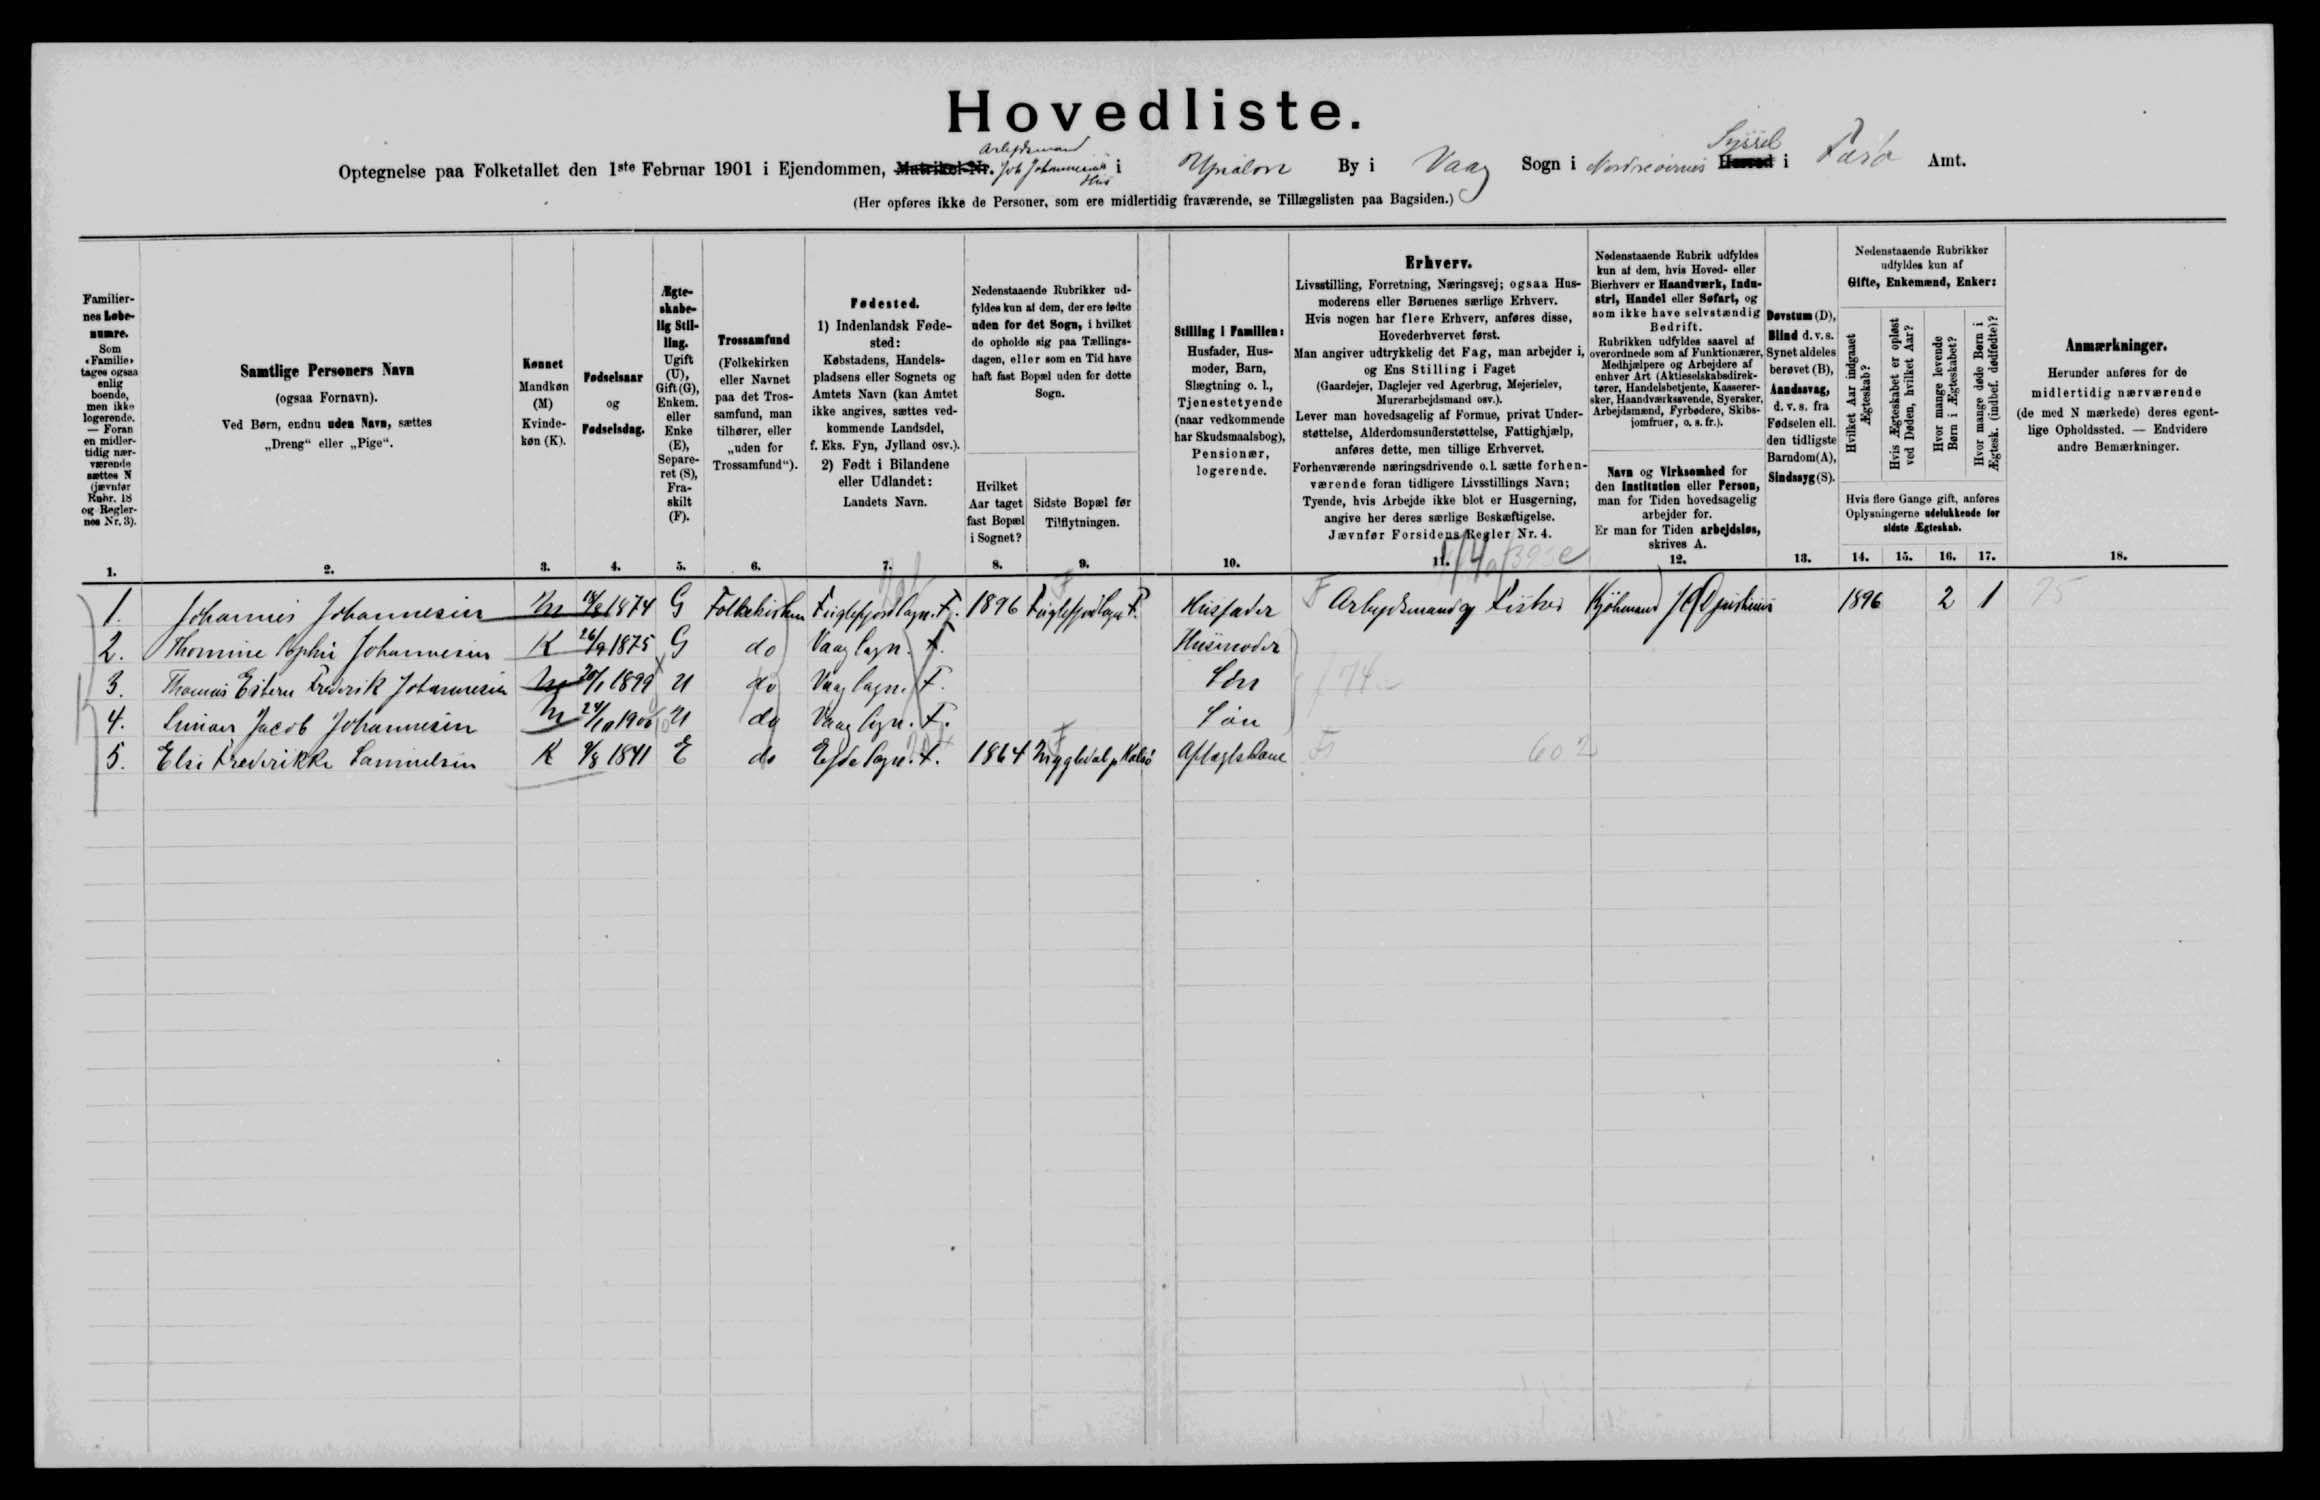 Hovedliste.
Arbejdsmand Syssel
Optegnelse paa Folketallet den 1ste Februar 1901 i Ejendommen, Matrikel-Nr. Joh Johannesens Hus i By i Vaag Sogn i Norderøernes Herred i Færø Amt.
(Her opføres ikke de Personer, som ere midlertidig fraværende, se Tillægslisten paa Bagsiden.)
Familiernes Løbenumre. Som «Familie» tages ogsaa enlig boende, men ikke logerende. — Foran en midlertidig nærværende sættes N (jævnfør Rubr. 18 og Reglernes Nr. 3).
Samtlige Personers Navn
(ogsaa Fornavn).
Ved Børn, endnu uden Navn, sættes
„Dreng“ eller „Pige“.
Kønnet
Mandkøn
(M)
Kvinde-
køn (K).
Fødselsaar
og
Fødselsdag.
Ægte-
skabe-
lig Stil-
ling.
Ugift
(U),
Gift (G),
Enkem.
eller
Enke
(E),
Separe-
ret (S),
Fra-
skilt
(F).
Trossamfund
(Folkekirken
eller Navnet
paa det Tros-
samfund, man
tilhører, eller
„uden for
Trossamfund“).
Fødested.
1) Indenlandsk Føde-
sted:
Købstadens, Handels-
pladsens eller Sognets og
Amtets Navn (kan Amtet
ikke angives, sættes ved-
kommende Landsdel,
f. Eks. Fyn, Jylland osv.).
2) Født i Bilandene
eller Udlandet:
Landets Navn.
Nedenstaaende Rubrikker ud-
fyldes kun af dem, der ere fødte
uden for det Sogn, i hvilket
de opholde sig paa Tællings-
dagen, eller som en Tid have
haft fast Bopæl uden for dette
Sogn.
Hvilket
Aar taget
fast Bopæl
i Sognet?
Sidste Bopæl før
Tilflytningen.
Stilling i Familien:
Husfader, Hus-
moder, Barn,
Slægtning o. l.,
Tjenestetyende
(naar vedkommende
har Skudsmaalsbog),
Pensionær,
logerende.
Erhverv.
Livsstilling, Forretning, Næringsvej; ogsaa Hus-
moderens eller Børnenes særlige Erhverv.
Hvis nogen har flere Erhverv, anføres disse,
Hovederhvervet først.
Man angiver udtrykkelig det Fag, man arbejder i,
og Ens Stilling i Faget
(Gaardejer, Daglejer ved Agerbrug, Mejerielev,
Murerarbejdsmand osv.).
Lever man hovedsagelig af Formue, privat Under-
støttelse, Alderdomsunderstøttelse, Fattighjælp,
anføres dette, men tillige Erhvervet.
Forhenværende næringsdrivende o. l. sætte forhen-
værende foran tidligere Livsstillings Navn;
Tyende, hvis Arbejde ikke blot er Husgerning,
angive her deres særlige Beskæftigelse.
Jævnfør Forsidens Regler Nr. 4.
Nedenstaaende Rubrik udfyldes
kun af dem, hvis Hoved- eller
Bierhverv er Haandværk, Indu-
stri, Handel eller Søfart, og
som ikke have selvstændig
Bedrift.
Rubrikken udfyldes saavel af
overordnede som af Funktionærer,
Medhjælpere og Arbejdere af
enhver Art (Aktieselskabsdirek-
tører, Handelsbetjente, Kasserer-
sker, Haandværkssvende, Syersker,
Arbejdsmænd, Fyrbødere, Skibs-
jomfruer, o. s. fr.).
Navn og Virksomhed for
den Institution eller Person,
man for Tiden hovedsagelig
arbejder for.
Er man for Tiden arbejdsløs,
skrives A.
Døvstum (D),
Blind d. v. s.
Synet aldeles
berøvet (B),
Aandssvag,
d. v. s. fra
Fødselen ell.
den tidligste
Barndom (A),
Sindssyg (S).
Nedenstaaende Rubrikker
udfyldes kun af
Gifte, Enkemænd, Enker:
Hvilket Aar indgaaet Ægteskab?
Hvis Ægteskabet er opløst ved Døden, hvilket Aar?
Hvor mange levende Børn i Ægteskabet?
Hvor mange døde Børn i Ægtesk. (indbef. dødfødte)?
Hvis flere Gange gift, anføres
Oplysningerne udelukkende for
sidste Ægteskab.
Anmærkninger.
Herunder anføres for de
midlertidig nærværende
(de med N mærkede) deres egent-
lige Opholdssted. — Endvidere
andre Bemærkninger.
1. 2. 3. 4. 5. 6. 7. 8. 9. 10. 11. 12. 13. 14. 15. 16. 17. 18.
1. Johannes Johannesen M 1874 G Folkekirken Fuglefjord Sogn. F. 1896 Fuglefjord Sogn F. Husfader Arbejdsmand og Fisker Kjøbmand 1896 2 1 75
2. Thomine Sophie Johannesen K 26/9 1875 G do Vaag Sogn. F. Husmoder
3. Thomas Frederik Johannesen M 20/1 1899 U do Vaag Sogn. F. Søn
4. Jacob Johannesen M 24/10 1900 U do Vaag Sogn. F. Søn
5. Else Frederikke Samuelsen K 1841 E do Ejde Sogn. F. 1864 Myggledal p. Kalsø Aftægtskone 602